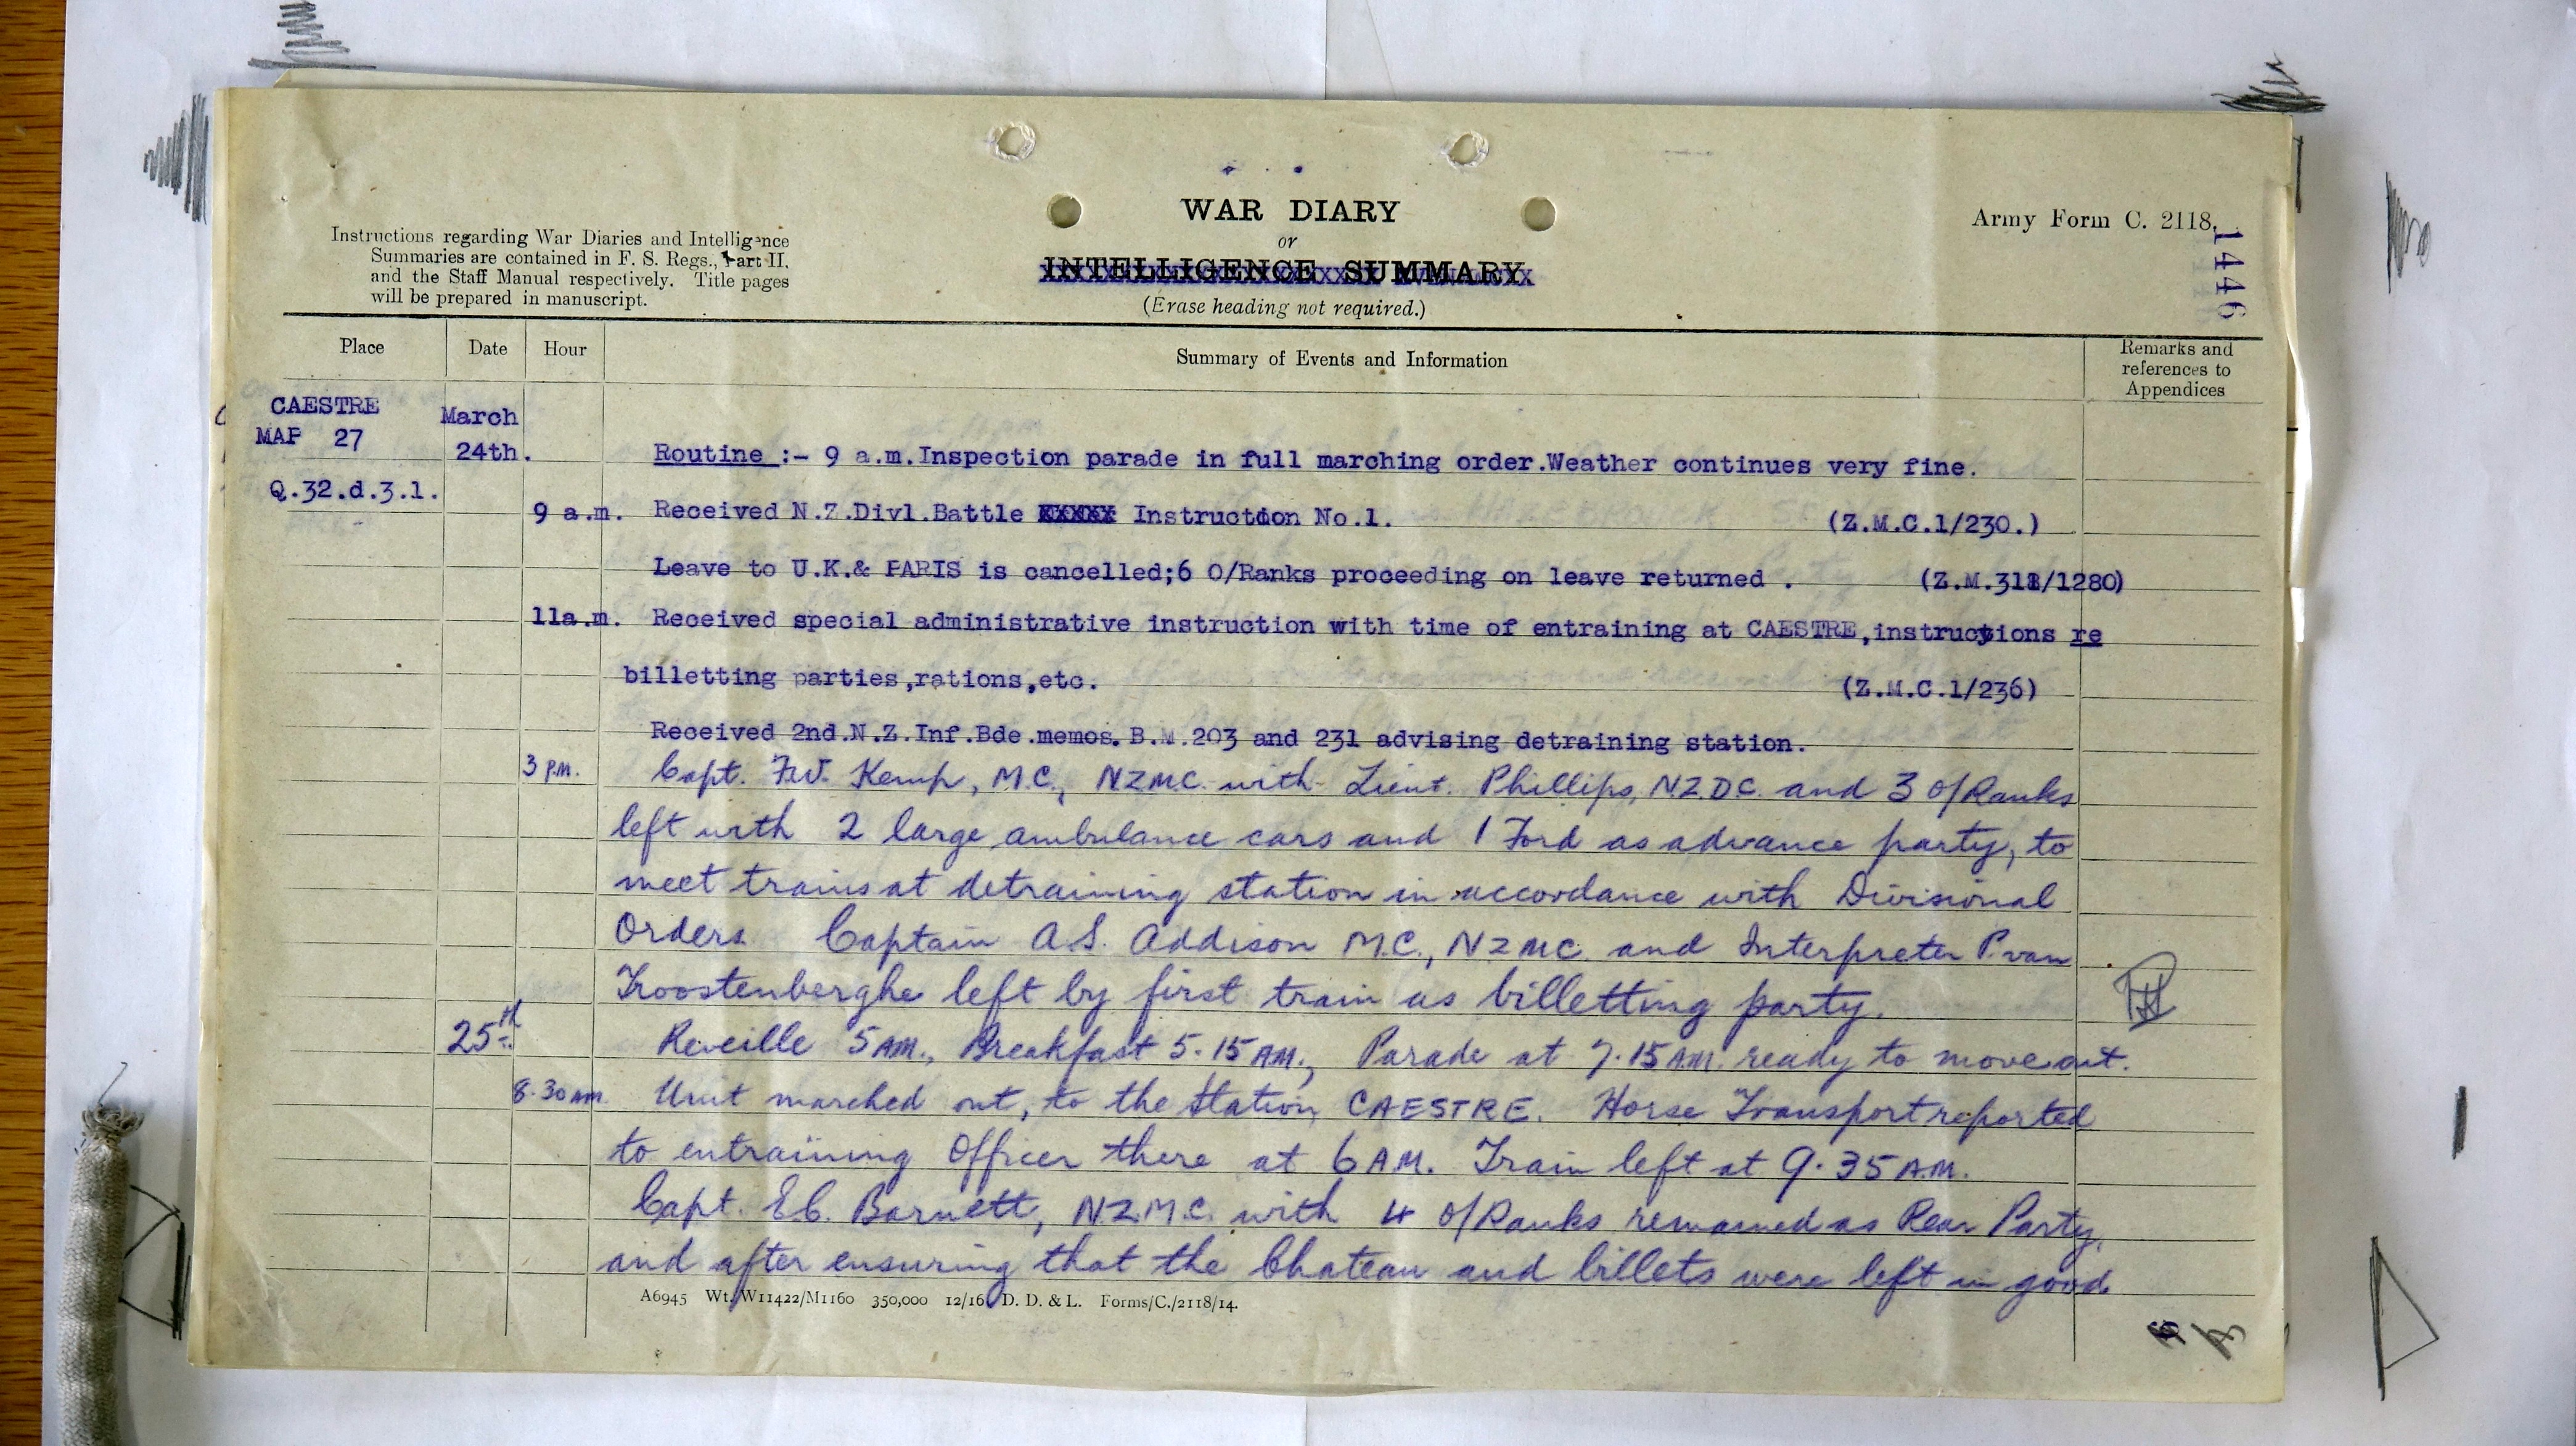 WAR DIARY
or
INTELLIGENCE SUMMARY
(Erase heading not required.)
Instructions regarding War Diaries and Intelligence
Summaries are contained in F. S. Regs., Part II.
and the Staff Manual respectively. Title pages
will be prepared in manuscript.
Army Form C. 2118.
1446
Place Date Hour Summary of Events and Information Remarks and references to Appendices
CAESTRE March
MAP 27 24th. Routine :- 9 a.m.Inspection parade in full marching order.Weather continues very fine.
Q.32.d.3.1.
9 a.m. Received N.Z.Divl.Battle XXXXX Instruction No.1. (Z.M.C.1/230.)
Leave to U.K.& PARIS is cancelled;6 O/Ranks proceeding on leave returned . (Z.M.318/1280)
11a.m. Received special administrative instruction with time of entraining at CAESTRE,instructions re
billetting parties,rations,etc. (Z.M.C.1/236)
Received 2nd.N.Z.Inf.Bde.memos. B.M.203 and 231 advising detraining station.
3 P.M. Capt. F.W. Kemp, M.C., NZMC. with Lieut. Phillips, N.Z.D.C. and 3 O/Ranks
left with 2 large ambulance cars and 1 Ford as advance party, to
meet trains at detraining station in accordance with Divisional
Orders Captain A.S. Addison M.C., NZMC. and Interpreter P. van
Troostenberghe left by first train as billetting party.
25th Reveille 5 AM., Breakfast 5.15 AM., Parade at 7.15 A.M. ready to move out.
8.30 AM. Unit marched out, to the Station CAESTRE. Horse Transport reported
to entraining Officer there at 6 AM. Train left at 9.35 A.M.
Capt. E.C. Barnett, NZ.M.C. with 4 O/Ranks remained as Rear Party,
and after ensuring that the Chateau and billets were left in good
A6945 Wt. W11422/M1160 350,000 12/16 D. D. & L. Forms/C./2118/14.